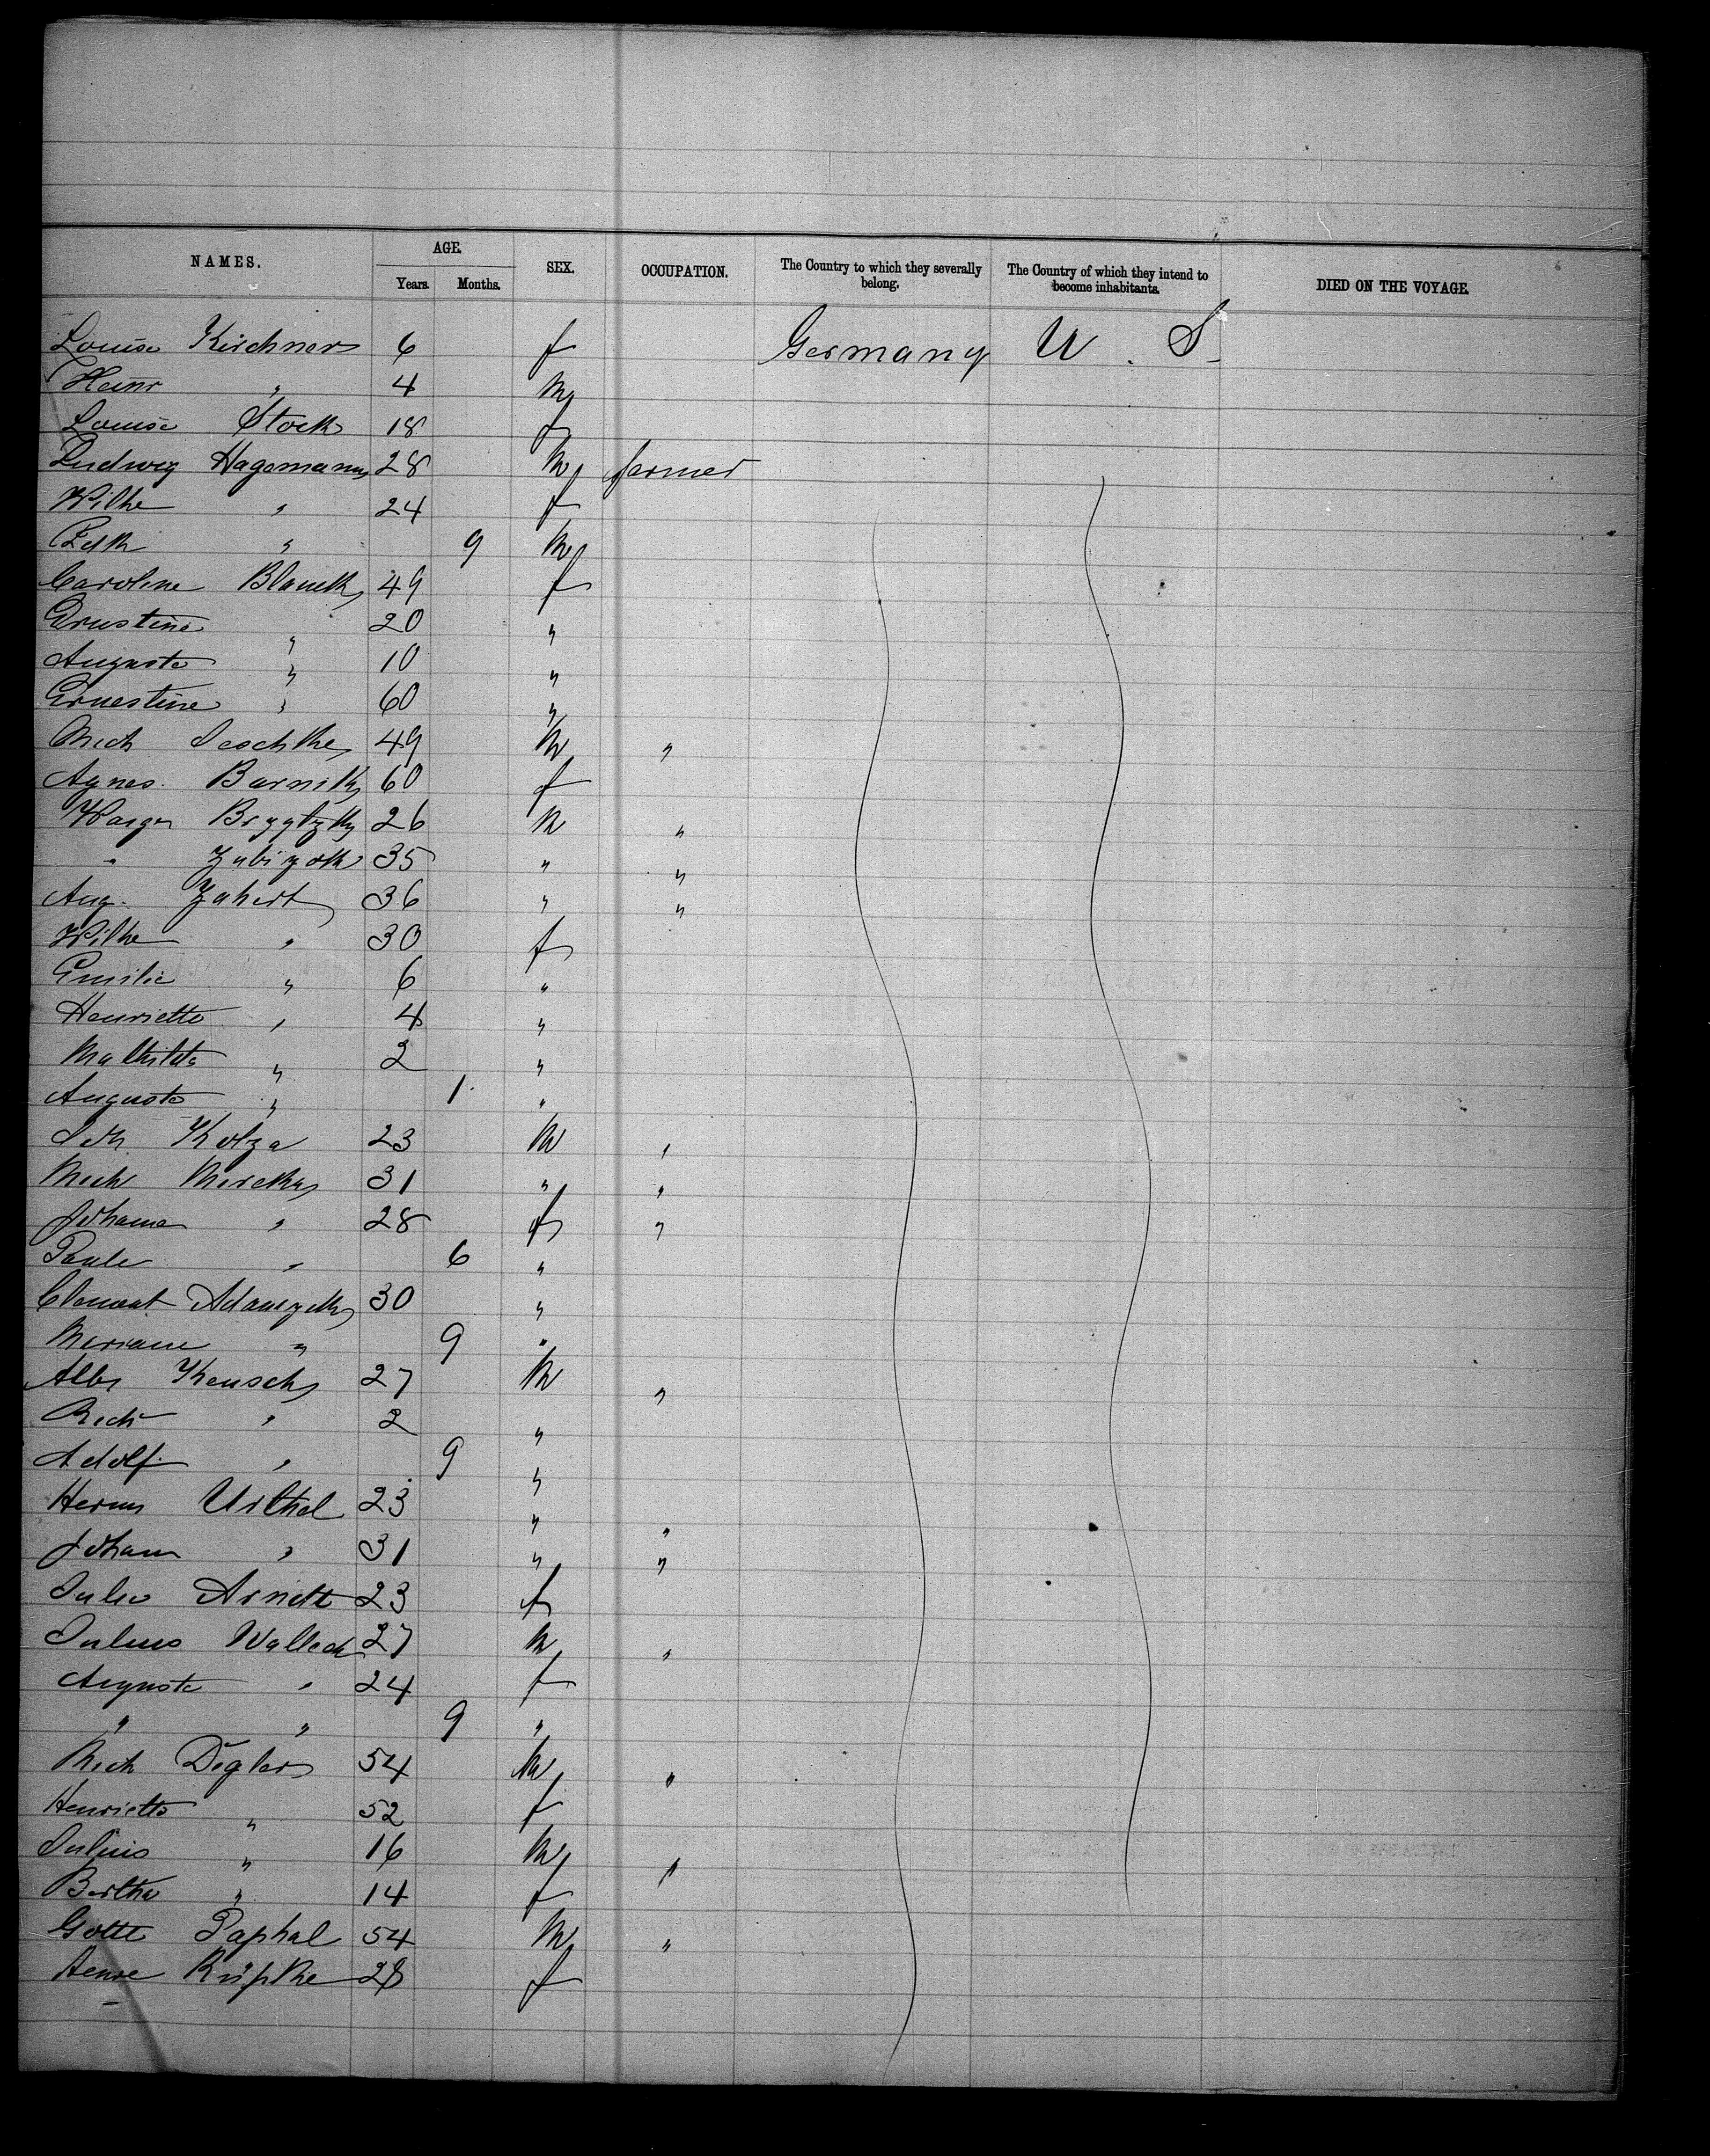 NAMES. AGE. SEX. OCCUPATION. The Country to which they severally belong. The Country of which they intend to become inhabitants. DIED ON THE VOYAGE.
Years. Months.
Louise Kirchner 6 f Germany U. S.
Heinr " 4 m
Louise Stock 18 f
Ludwig Hagemann 28 m farmer
Wilhe " 24 f
" 9 m
Caroline Blanck 49 f
Ernstine " 20 "
Auguste " 10 "
Ernestine " 60 "
Mich Jeschke 49 m "
Agnes. Barnik 60 f
26 m "
" 35 " "
Aug. Zahert 36 " "
Wilhe " 30 f
Emilie " 6 "
Henriette " 4 "
Mathilde " 2 "
Auguste " 1 "
Joh Kolza 23 m "
Mich 31 " "
Johanna " 28 f "
Paule " 6 "
Clement Adamzek 30 "
Mariane " 9 "
Albr Keusch 27 m "
" 2 "
Adolf " 9 "
Herm Urthel 23 " "
Johann " 31 " "
Arndt 23 f
Julius Walleck 27 m "
Auguste " 24 f
" " 9 "
Mich Digler 54 m "
Henriette " 52 f
Julius " 16 m "
Bertha " 14 f
Gottl Paphal 54 m "
Henre Rüpke 28 f